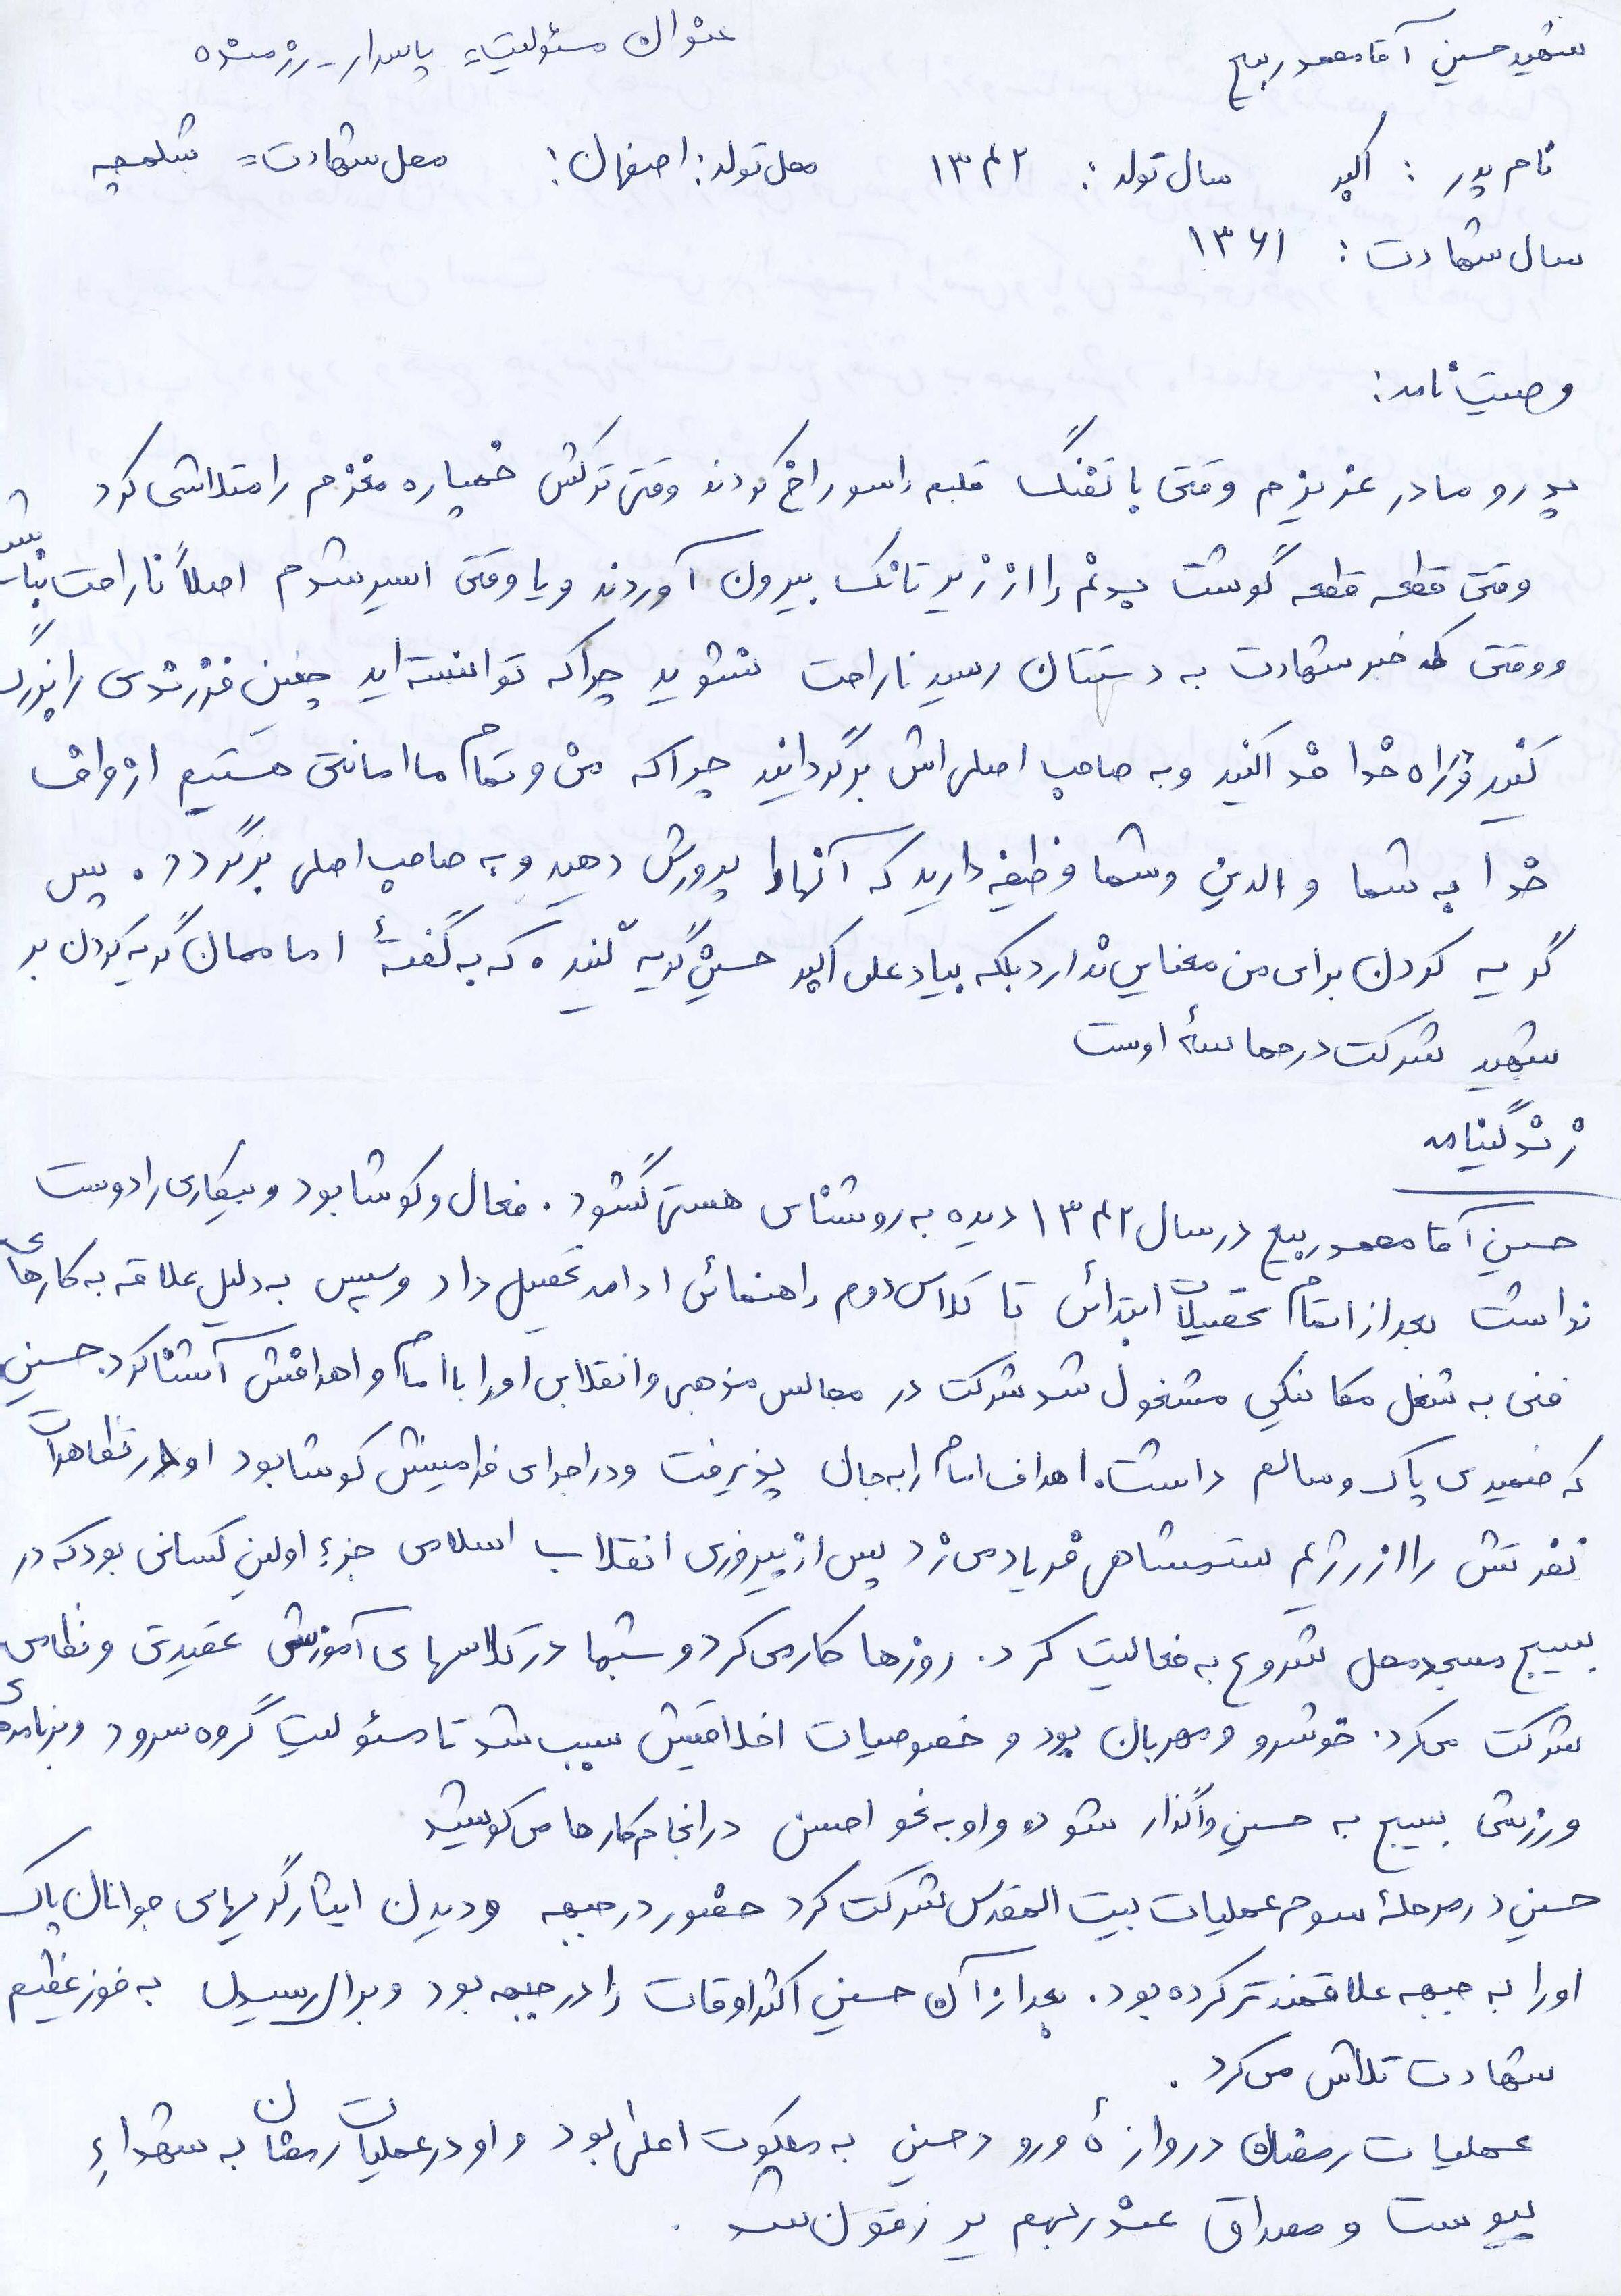 شهید حسین آقامحمدربیع عنوان مسئولیت= پاسدار-رزمنده
نام پدر : اکبر سال تولد : ۱۳۴۲ محل تولد : اصفهان : محل شهادت= شلمچه
سال شهادت : ۱۳۶۱
وصیت نامه:
پدر و مادر عزیزم وقتی با تفنگ قلبم را سوراخ کردند وقتی ترکش خمپاره مغزم را متلاشی کرد
وقتی قطعه قطعه گوشت بدنم را از زیر تانک بیرون آوردند و یا وقتی اسیر شدم اصلاً ناراحت نباشید
و وقتی که خبر شهادت به دستتان رسید ناراحت نشوید چرا که توانسته اید چنین فرزندی را بزرگ
کنید و در راه خدا فدا کنید و به صاحب اصلی اش برگردانید چرا که من و تمام ما امانتی هستیم از طرف
خدا به شما والدین و شما وظیفه دارید که آنها را پرورش دهید و به صاحب اصلی برگردد . پس
گریه کردن برای من معنایی ندارد بلکه بیاد علی اکبر حسین گریه کنید . که به گفتهٔ اماممان گریه کردن بر
شهید شرکت در حماسهٔ اوست
زندگینامه
حسین آقامحمدربیع در سال ۱۳۴۲ دیده به روشنای هستی گشود . فعال و کوشا بود و بیکاری را دوست
نداشت بعد از اتمام تحصیلات ابتدائی تا کلاس دوم راهنمائی ادامه تحصیل داد و سپس به دلیل علاقه به کارهای
فنی به شغل مکانیکی مشغول شد شرکت در مجالس مذهبی و انقلابی او را با امام و اهدافش آشنا کرد. حسین
که ضمیری پاک و سالم داشت. اهداف امام را به جان پذیرفت و در اجرای فرامینش کوشا بود او در تظاهرات
نفرتش را از رژیم ستمشاهی فریاد می زد پس از پیروزی انقلاب اسلامی جزء اولین کسانی بود که در
بسیج مسجد محل شروع به فعالیت کرد. روزها کار می کرد و شبها در کلاسهای آموزشی عقیدتی و نظامی
شرکت می کرد. خوشرو و مهربان بود و خصوصیات اخلاقیش سبب شد تا مسئولیت گروه سرود و برنامه های
ورزشی بسیج به حسین واگذار شود و او به نحو احسن در انجام کارها می کوشید
حسین در مرحلهٔ سوم عملیات بیت المقدس شرکت کرد حضور در جبهه و دیدن ایثارگریهای جوانان پاک
او را به جبهه علاقمندتر کرده بود . بعد از آن حسین اکثر اوقات را در جبهه بود و برای رسیدن به فوز عظیم
شهادت تلاش می کرد .
عملیات رمضان دروازهٔ ورود حسین به ملکوت اعلی بود و او در عملیات رمضان به شهداء
پیوست و مصداق عند ربهم یرزقون شد .